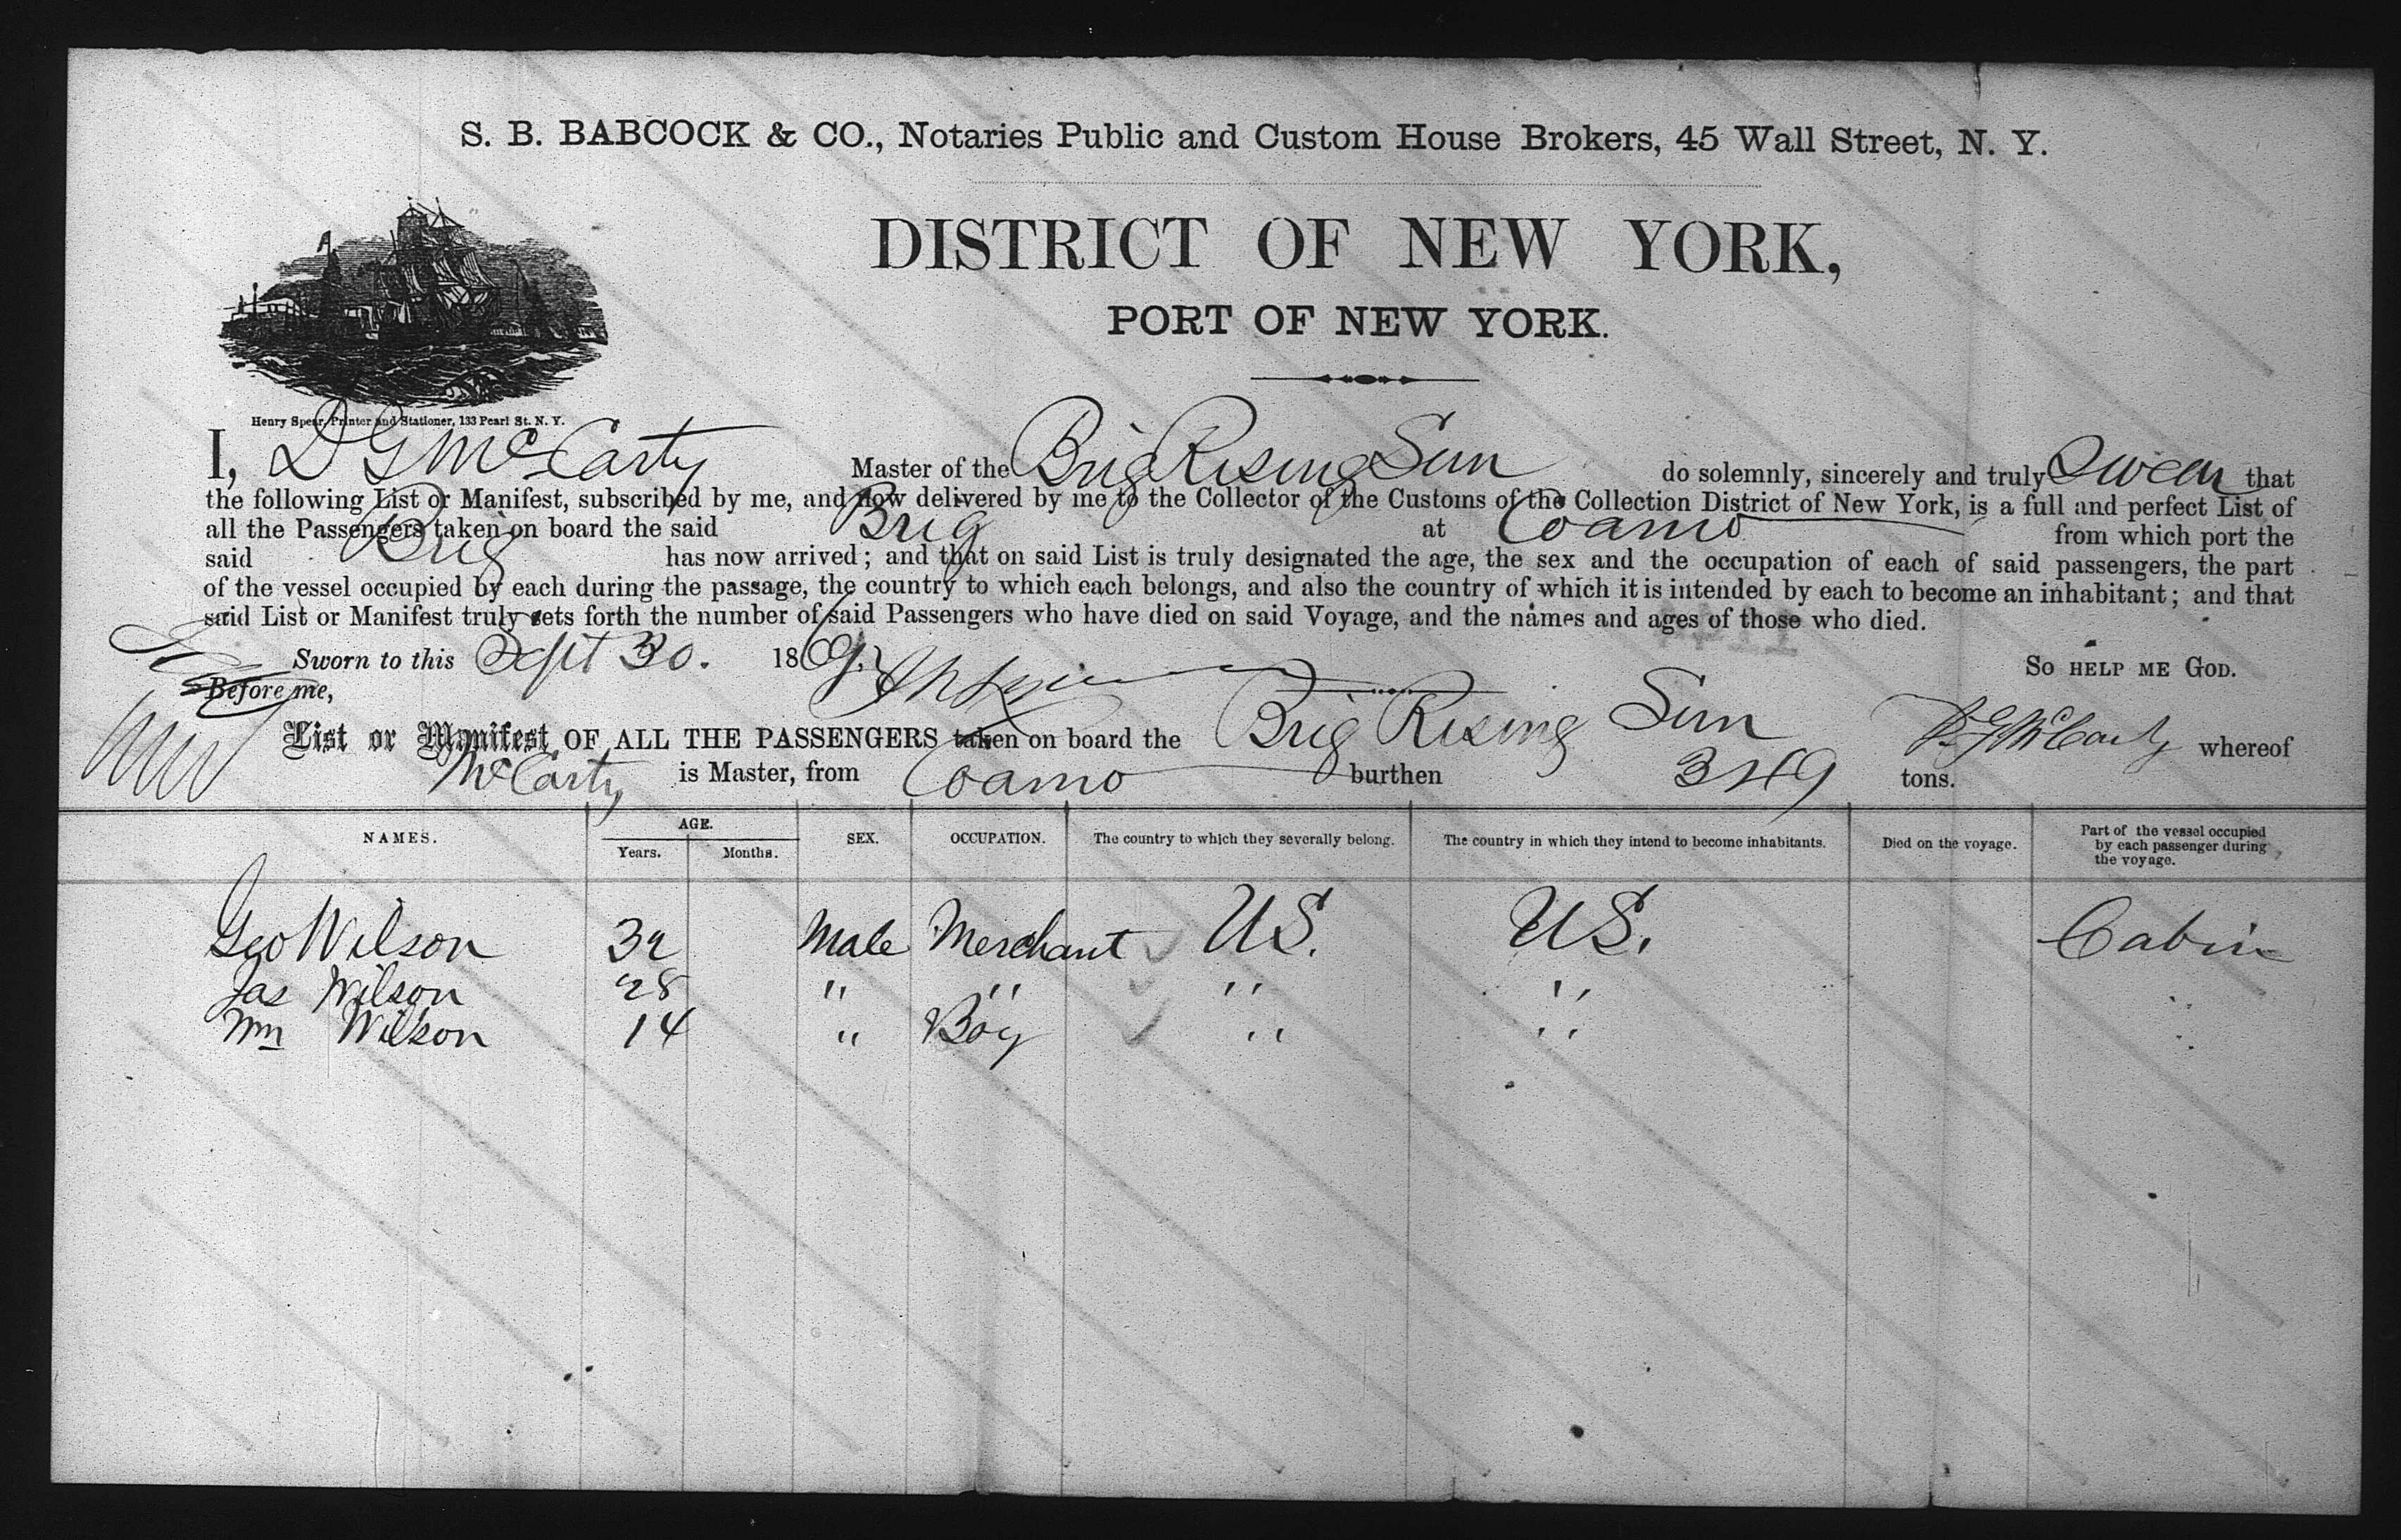 S. B. BABCOCK & CO., Notaries Public and Custom House Brokers, 45 Wall Street, N. Y.
DISTRICT OF NEW YORK,
PORT OF NEW YORK.
Henry Spear, Printer and Stationer, 133 Pearl St. N. Y.
I, D G McCarty Master of the Brig Rising Sun do solemnly, sincerely and truly Swear that
the following List or Manifest, subscribed by me, and now delivered by me to the Collector of the Customs of the Collection District of New York, is a full and perfect List of
all the Passengers taken on board the said Brig at Coamo from which port the
said Brig has now arrived; and that on said List is truly designated the age, the sex and the occupation of each of said passengers, the part
of the vessel occupied by each during the passage, the country to which each belongs, and also the country of which it is intended by each to become an inhabitant; and that
said List or Manifest truly sets forth the number of said Passengers who have died on said Voyage, and the names and ages of those who died.
Sworn to this Sept 30. 1869. SO HELP ME GOD.
Before me,
List or Manifest OF ALL THE PASSENGERS taken on board the Brig Rising Sun D. G. McCarty whereof
McCarty is Master, from Coamo burthen 349 tons.
NAMES. AGE. SEX. OCCUPATION. The country to which they severally belong. The country in which they intend to become inhabitants. Died on the voyage. Part of the vessel occupied by each passenger during the voyage.
Years. Months.
Geo Wilson 32 Male Merchant US. US. Cabin
Jas Wilson 28 " " " " "
Wm Wilson 14 " Boy " " "